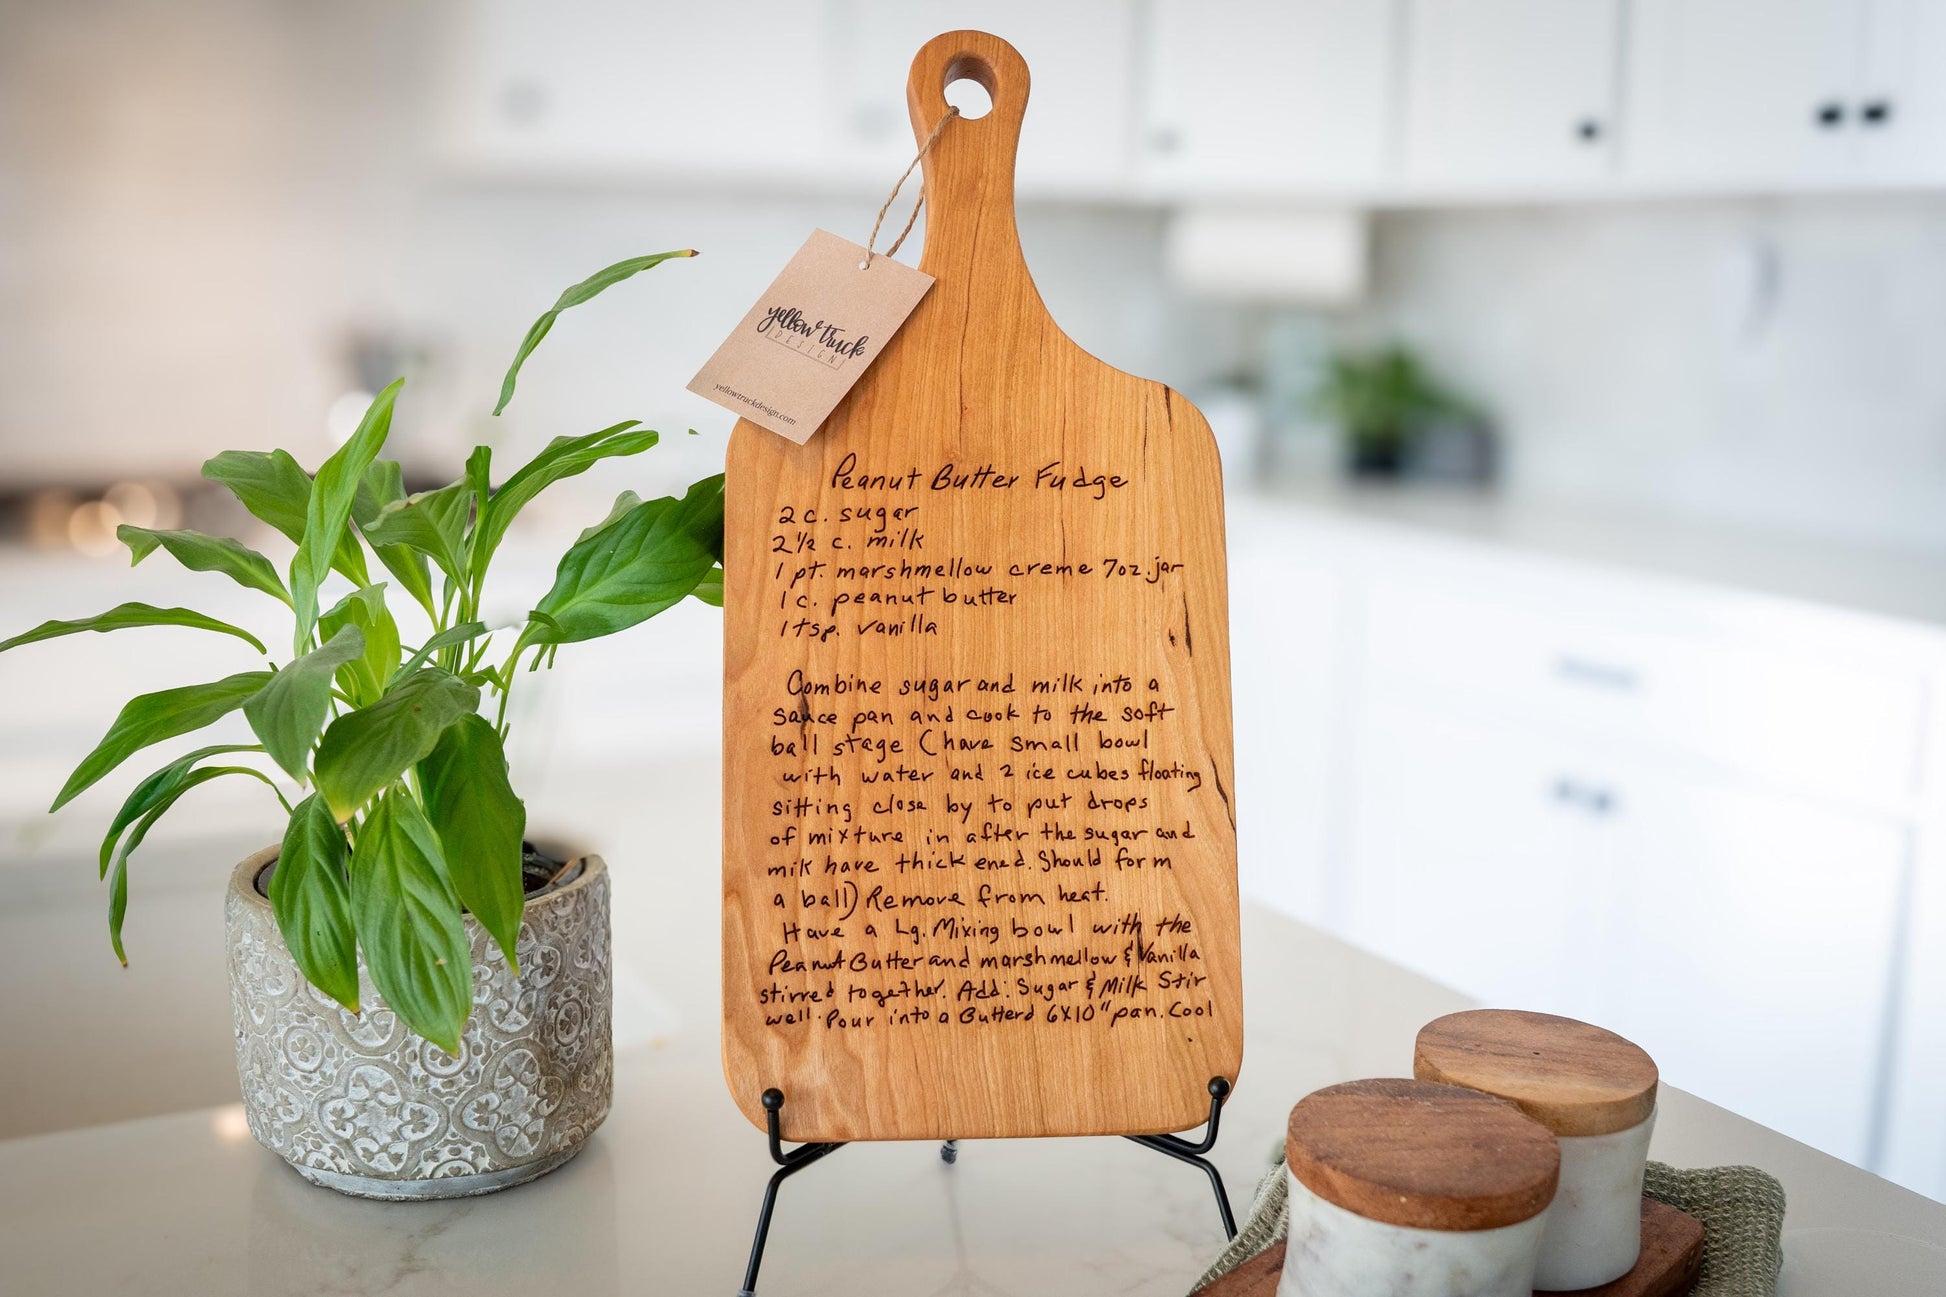 yellow truck
DESIGN
yellowtruckdesign.com
Peanut Butter Fudge
2 c. sugar
2 1/2 c. milk
1 pt. marshmellow creme 7oz. jar
1 c. peanut butter
1 tsp. vanilla
Combine sugar and milk into a
sauce pan and cook to the soft
ball stage (have small bowl
with water and 2 ice cubes floating
sitting close by to put drops
of mixture in after the sugar and
milk have thickened. Should form
a ball) Remove from heat.
Have a Lg. Mixing bowl with the
Peanut Butter and marshmellow & Vanilla
stirred together. Add: Sugar & Milk Stir
well. Pour into a Butterd 6x10" pan. Cool